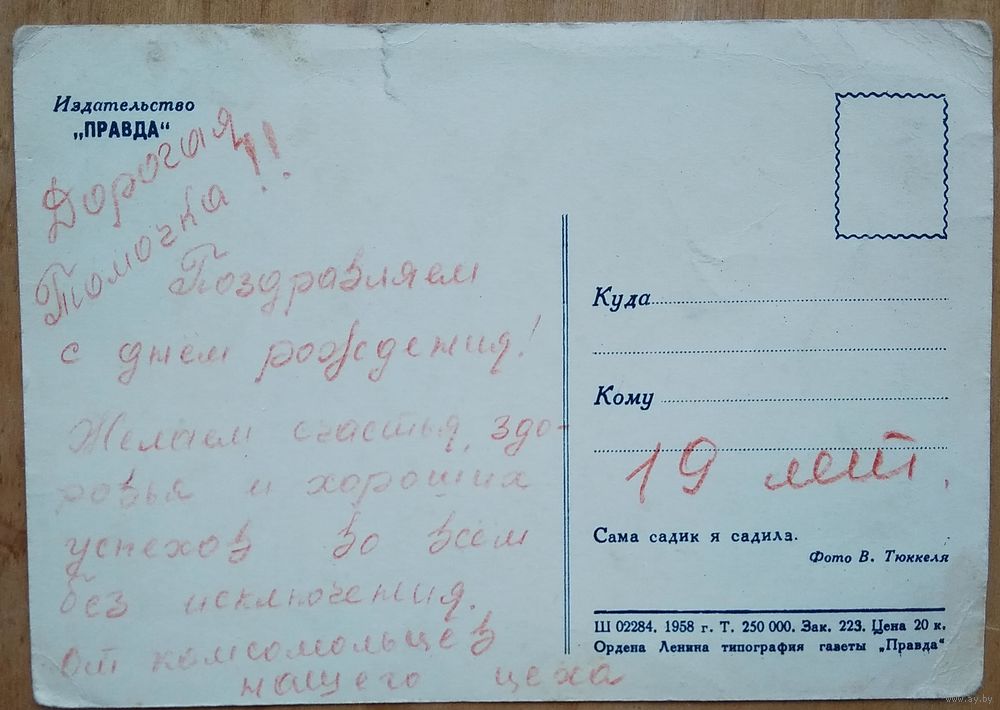 Издательство
„ПРАВДА“
Дорогая
Томочка!!
Поздравляем
с днем рождения!
Желаем счастья, здо-
ровья и хороших
успехов во всем
без исключения.
От комсомольцев
нашего цеха
Куда
Кому
19 лет.
Сама садик я садила.
Фото В. Тюккеля
Ш 02284. 1958 г. Т. 250 000. Зак. 223. Цена 20 к.
Ордена Ленина типография газеты „Правда“
www.ay.by